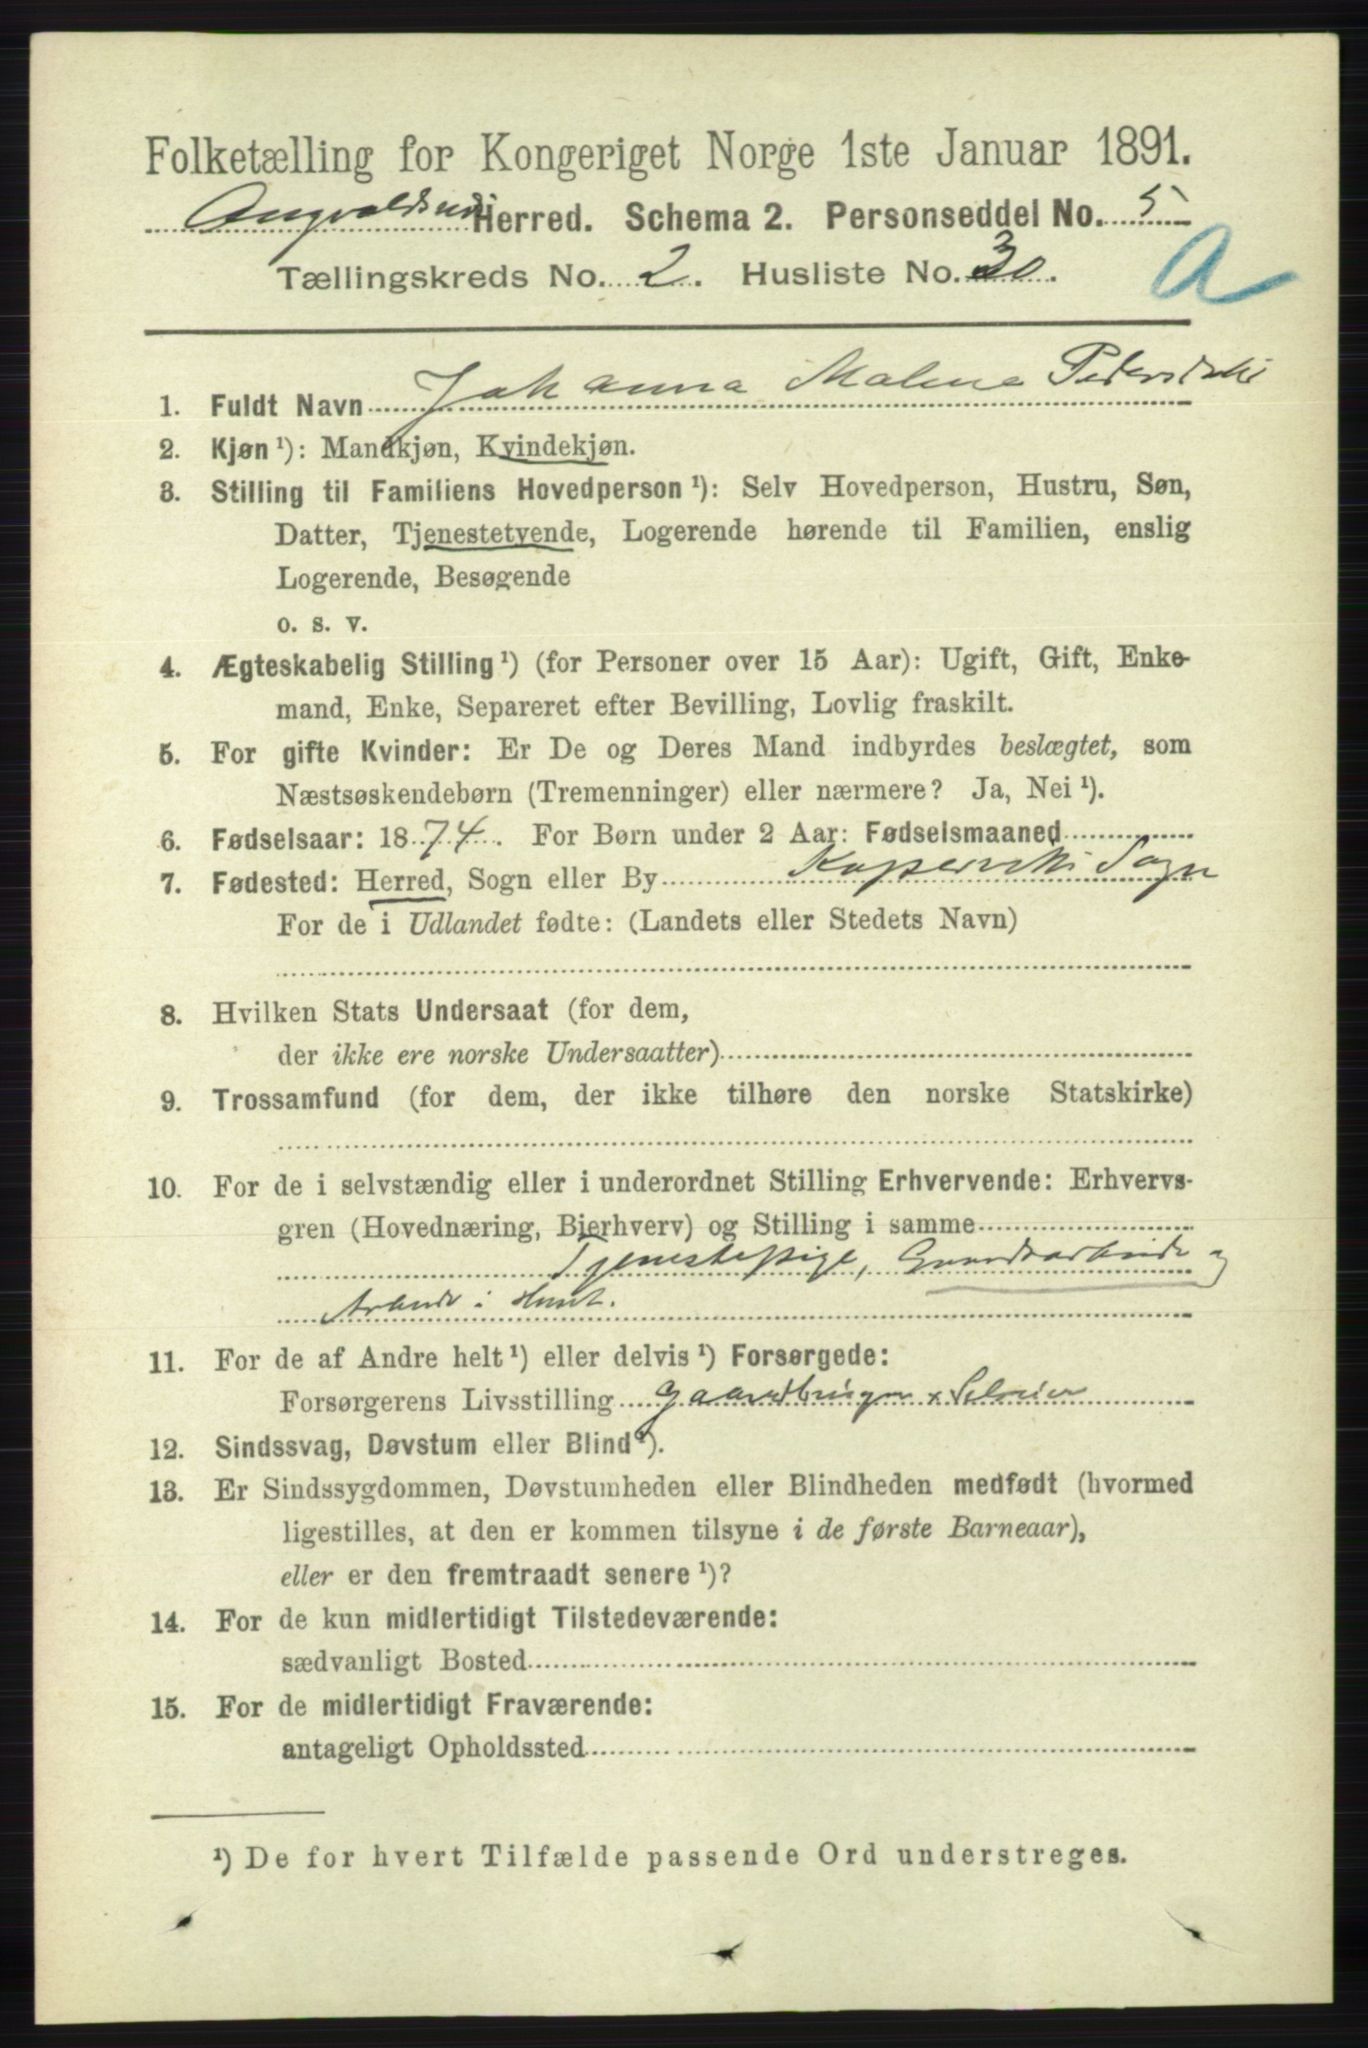 Folketælling for Kongeriget Norge 1ste Januar 1891.
Herred. Schema 2. Personseddel No. 5
Tællingskreds No. 2. Husliste No. 30.
A
1. Fuldt Navn Johanna Malene
2. Kjøn ¹): Mandkjøn, Kvindekjøn.
3. Stilling til Familiens Hovedperson ¹): Selv Hovedperson, Hustru, Søn,
Datter, Tjenestetyende, Logerende hørende til Familien, enslig
Logerende, Besøgende
o. s. v.
4. Ægteskabelig Stilling ¹) (for Personer over 15 Aar): Ugift, Gift, Enke-
mand, Enke, Separeret efter Bevilling, Lovlig fraskilt.
5. For gifte Kvinder: Er De og Deres Mand indbyrdes beslægtet, som
Næstsøskendebørn (Tremenninger) eller nærmere? Ja, Nei ¹).
6. Fødselsaar: 1874. For Børn under 2 Aar: Fødselsmaaned
7. Fødested: Herred, Sogn eller By Sogn
For de i Udlandet fødte: (Landets eller Stedets Navn)
8. Hvilken Stats Undersaat (for dem,
der ikke ere norske Undersaatter)
9. Trossamfund (for dem, der ikke tilhøre den norske Statskirke)
10. For de i selvstændig eller i underordnet Stilling Erhvervende: Erhvervs-
gren (Hovednæring, Bierhverv) og Stilling i samme
Tjenestepige, og
i
11. For de af Andre helt ¹) eller delvis ¹) Forsørgede:
Forsørgerens Livsstilling Gaardbruger x Selveier
12. Sindssvag, Døvstum eller Blind ¹).
13. Er Sindssygdommen, Døvstumheden eller Blindheden medfødt (hvormed
ligestilles, at den er kommen tilsyne i de første Barneaar),
eller er den fremtraadt senere ¹)?
14. For de kun midlertidigt Tilstedeværende:
sædvanligt Bosted
15. For de midlertidigt Fraværende:
antageligt Opholdssted
¹) De for hvert Tilfælde passende Ord understreges.